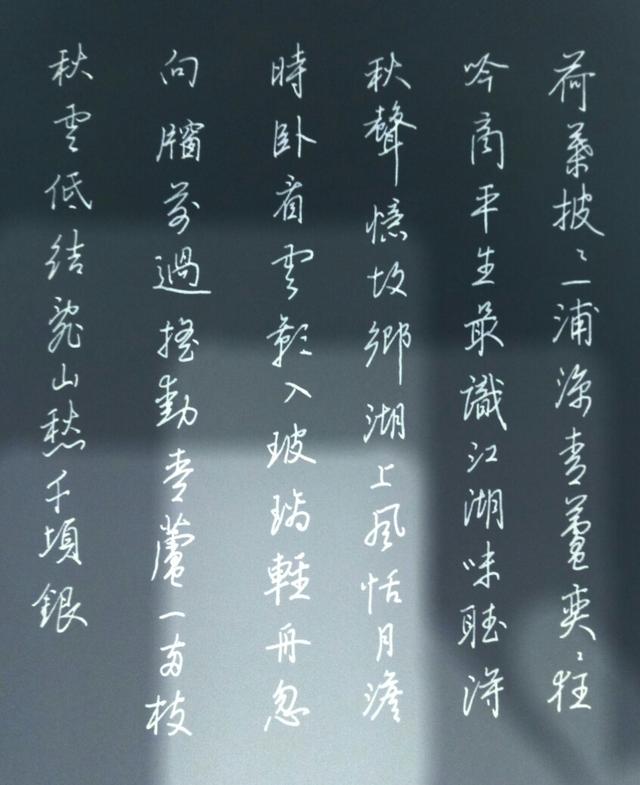 荷葉披〻一浦涼青蘆奕〻
吟商平生最識江湖味聽得
秋聲憶故鄉湖上風恬月澹
時卧看雲影入玻璃輕舟忽
向牕前過搖動青蘆一兩枝
秋雲低結亂山愁千頃銀